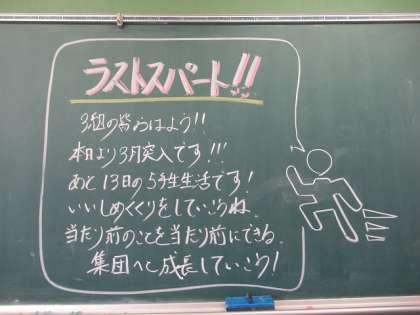 ラストスパート!!
3組の皆おはよう!!
本日より3月突入です!!!
あと13日の5年生生活です!
いいしめくくりをしていこうね
当たり前のことを当たり前にできる
集団へと成長していこう!